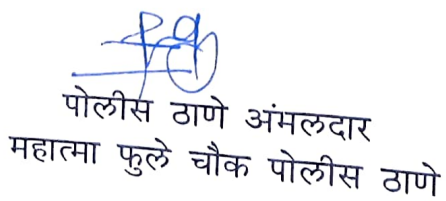 पोलीस ठाणे अंमलदार
महात्मा फुले चौक पोलीस ठाणे